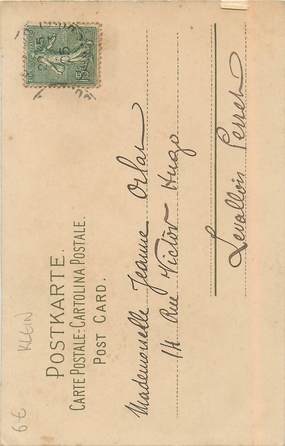 POSTKARTE.
CARTE POSTALE-CARTOLINA POSTALE.
POST CARD.
Mademoiselle Jeanne Orlac
14 Rue Victor Hugo
Levallois Perret
KLEIN
6€